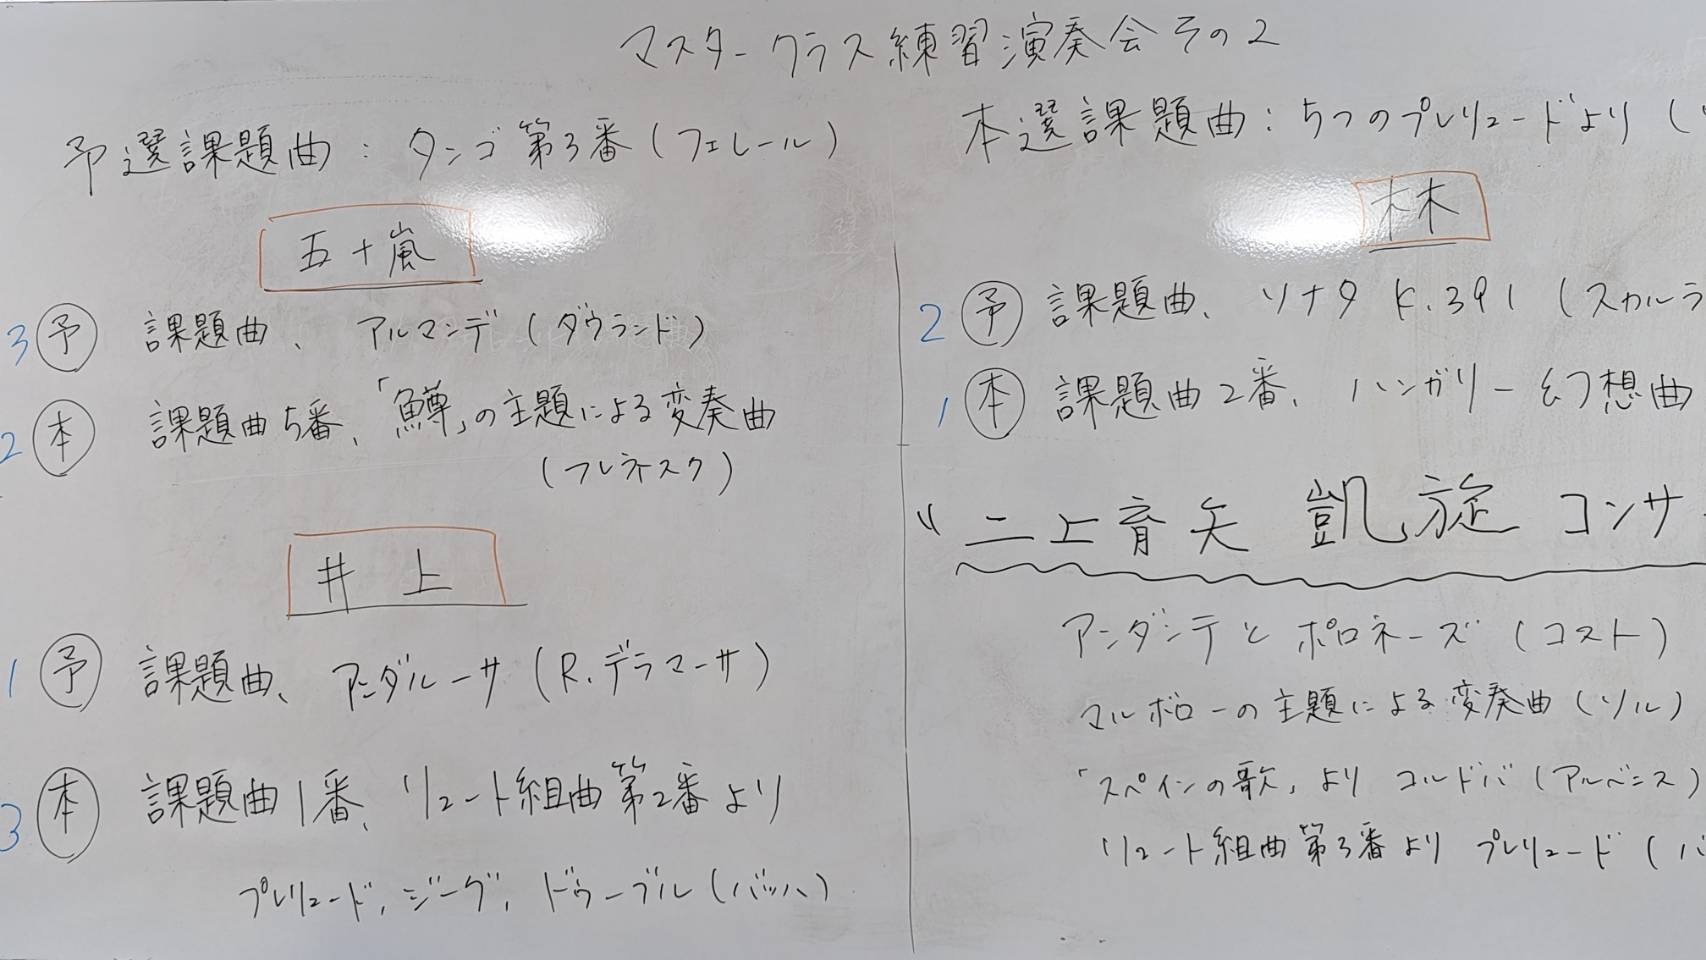 マスタークラス練習演奏会その2
予選課題曲：タンゴ第3番(フェレール)
五十嵐
3 予 課題曲、アルマンデ(ダウランド)
2 本 課題曲5番、「鱒」の主題による変奏曲
(フレネスク)
井上
1 予 課題曲、アンダルーサ(R.デラマーサ)
3 本 課題曲1番、リュート組曲第2番より
プレリュード,ジーグ,ドゥーブル(バッハ)
本選課題曲：5つのプレリュードより(
林
2 予 課題曲、ソナタ K.391 (スカルラ
1 本 課題曲2番、ハンガリー幻想曲
〃二上育矢 凱旋コンサ
アンダンテとポロネーズ(コスト)
マルボローの主題による変奏曲(ソル)
「スペインの歌」より コルドバ(アルベニス)
リュート組曲第3番より プレリュード(バ